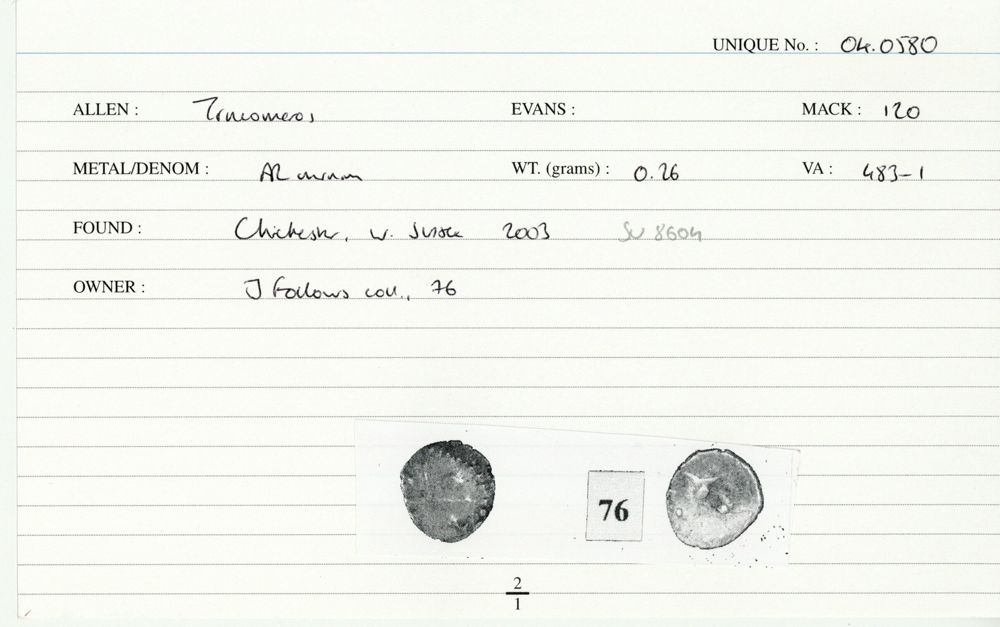 UNIQUE No. : 04.0580
ALLEN : Tincomeros EVANS : MACK : 120
METAL/DENOM : AR minim WT. (grams) : 0.26 VA : 483-1
FOUND : Chichester, W. Sussex 2003 SU 8604
OWNER : J Follows coll., 76
76
2
1